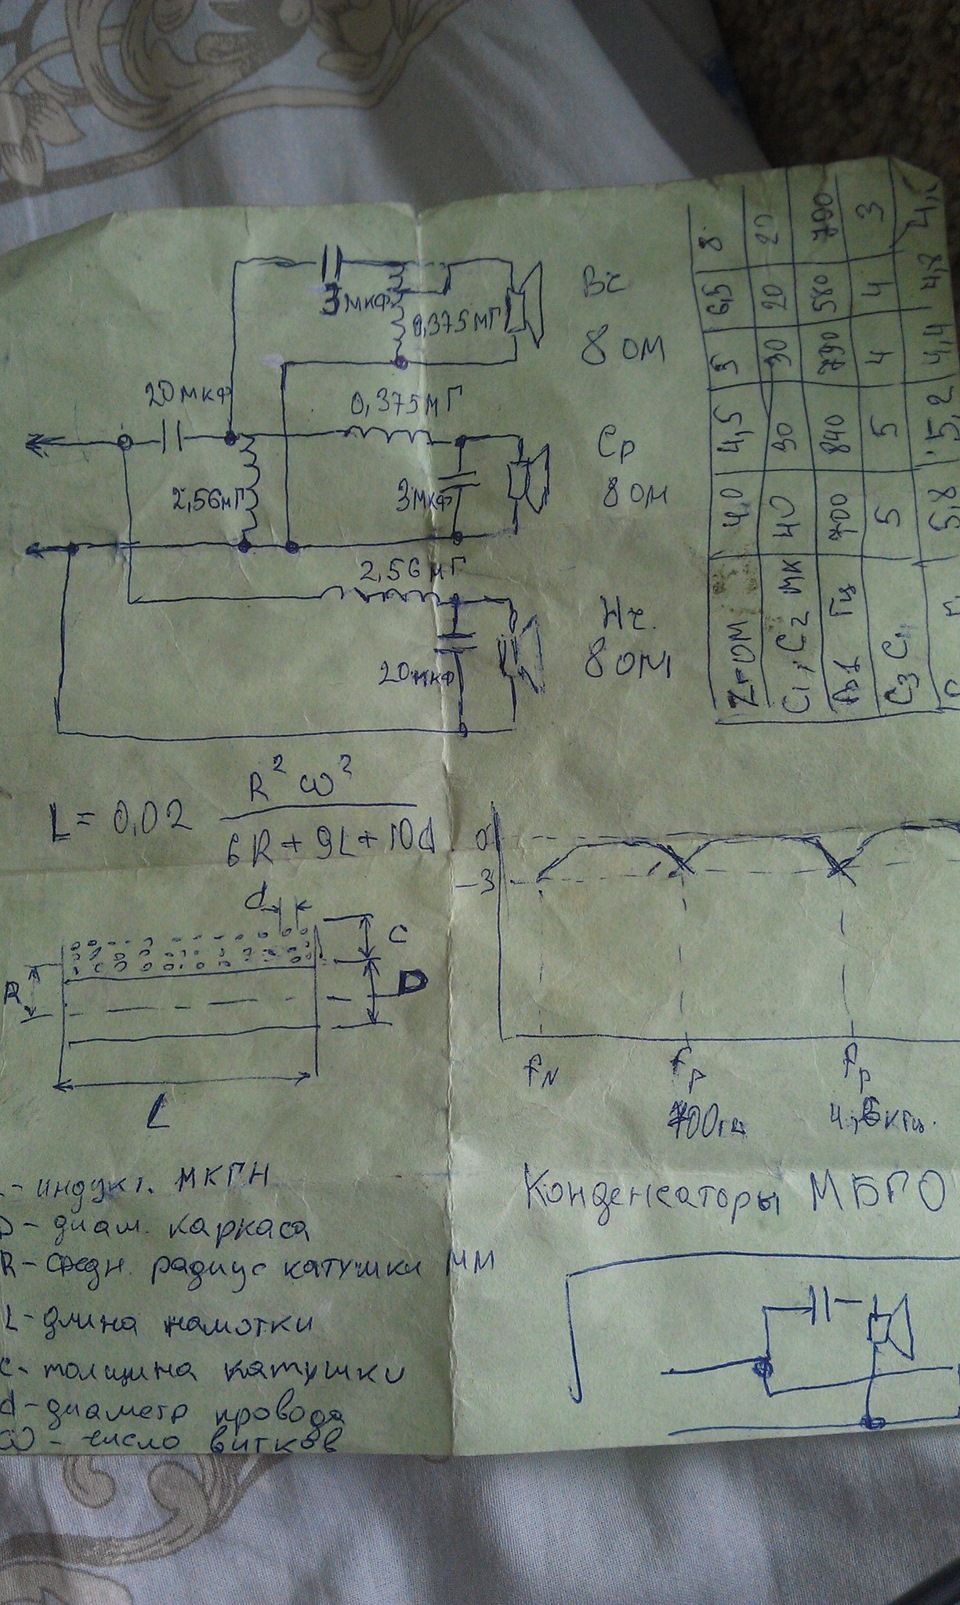 3мкф
0,375мГ
Вч
8 ом
20мкф
0,375мГ
2,56мГ
3мкф
Ср
8 ом
2,56мГ
20мкф
Нч.
8 ом
Z гр ом 4,0 4,5 5 6,5 8
C1, C2 мк 40 30 30 20 20
Гц 700 840 790 580 700
C3 C4 5 5 4 4 3
5,8 5,2 4,4 4,8
L = 0,02 R² ω² / 6R + 9L + 10d
d
c
R
D
L
0
-3
fN
fp
fp
700гц
4,5кгц.
- индукт. МКГН
D - диам. каркаса
R - средн. радиус катушки мм
L - длина намотки
c - толщина катушки
d - диаметр провода
ω - число витков
Конденсаторы МБГО